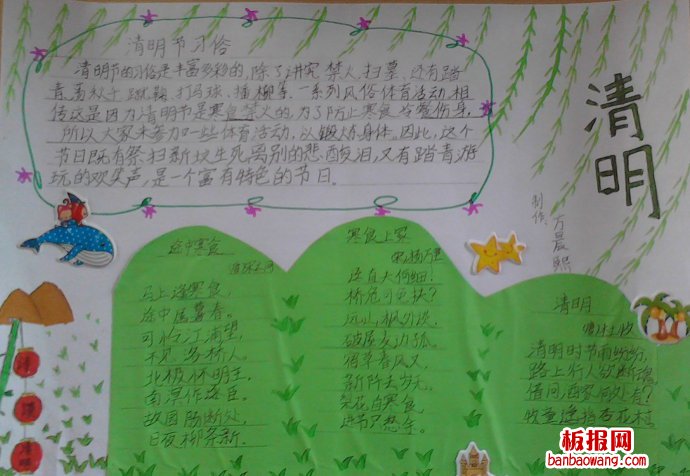 清明节习俗
清明节的习俗是丰富多彩的,除了讲究禁火、扫墓,还有踏
青、荡秋千、蹴鞠、打马球、插柳等一系列风俗体育活动。相
传这是因为清明节是寒食禁火的,为了防止寒食冷餐伤身,
所以大家来参加一些体育活动,以锻炼身体。因此,这个
节日既有祭扫新坟生死离别的悲酸泪,又有踏青游
玩的欢笑声,是一个富有特色的节日。
清明
制作:
万晨熙
途中寒食
马上逢寒食,
途中属暮春。
可怜江浦望,
不见洛桥人。
北极怀明主,
南溟作逐臣。
故园肠断处,
日夜柳条新。
寒食上冢
宋 杨万里
径直夫何细!
桥危可免扶?
远山枫外淡,
破屋麦边孤。
宿草春风又,
新阡去岁无。
梨花自寒食,
进节只愁余。
清明
唐 杜牧
清明时节雨纷纷,
路上行人欲断魂。
借问酒家何处有?
牧童遥指杏花村。
清
明
板报网
www.banbaowang.com